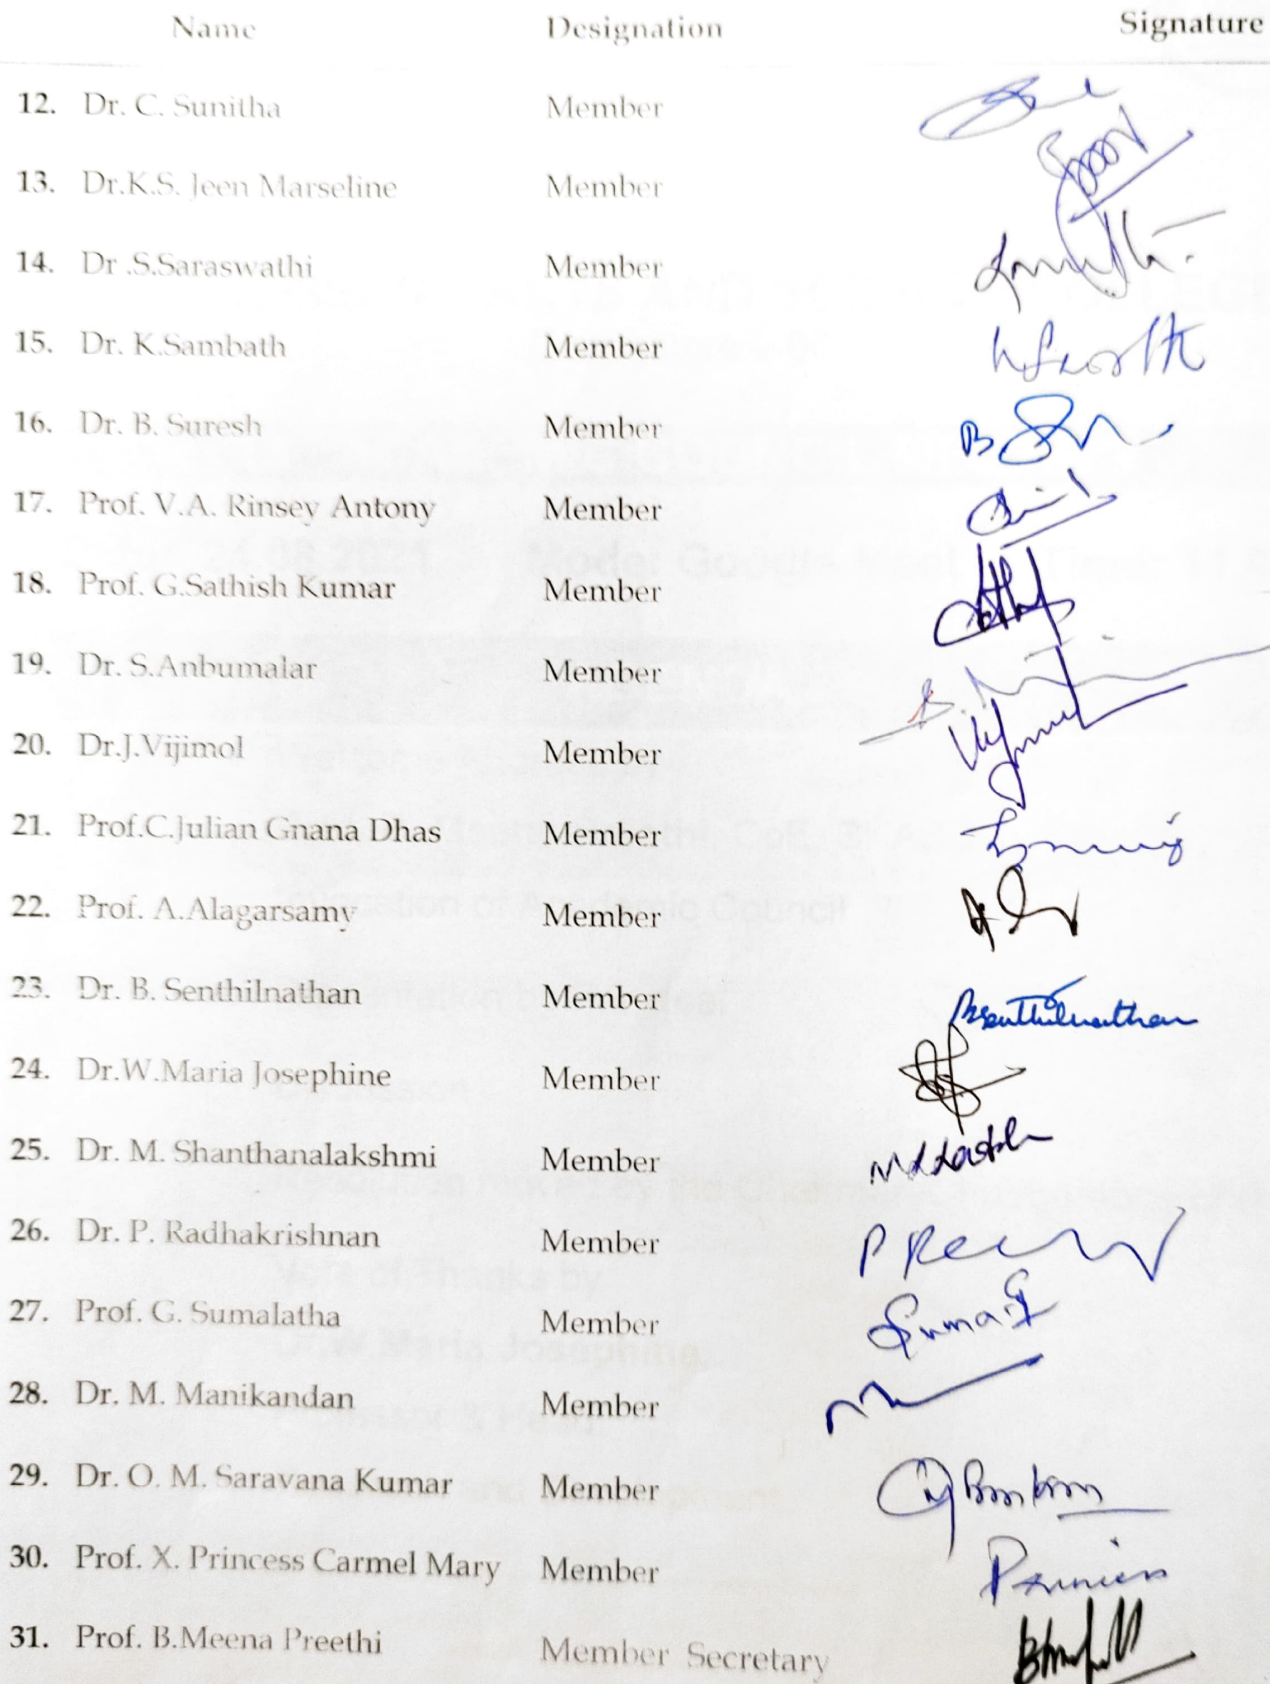 Name Designation Signature
12. Dr. C. Sunitha Member
13. Dr.K.S. Jeen Marseline Member
14. Dr .S.Saraswathi Member
15. Dr. K.Sambath Member
16. Dr. B. Suresh Member
17. Prof. V.A. Rinsey Antony Member
18. Prof. G.Sathish Kumar Member
19. Dr. S.Anbumalar Member
20. Dr.J.Vijimol Member
21. Prof.C.Julian Gnana Dhas Member
22. Prof. A.Alagarsamy Member
23. Dr. B. Senthilnathan Member BSenthilnathan
24. Dr.W.Maria Josephine Member
25. Dr. M. Shanthanalakshmi Member
26. Dr. P. Radhakrishnan Member
27. Prof. G. Sumalatha Member
28. Dr. M. Manikandan Member
29. Dr. O. M. Saravana Kumar Member
30. Prof. X. Princess Carmel Mary Member
31. Prof. B.Meena Preethi Member Secretary